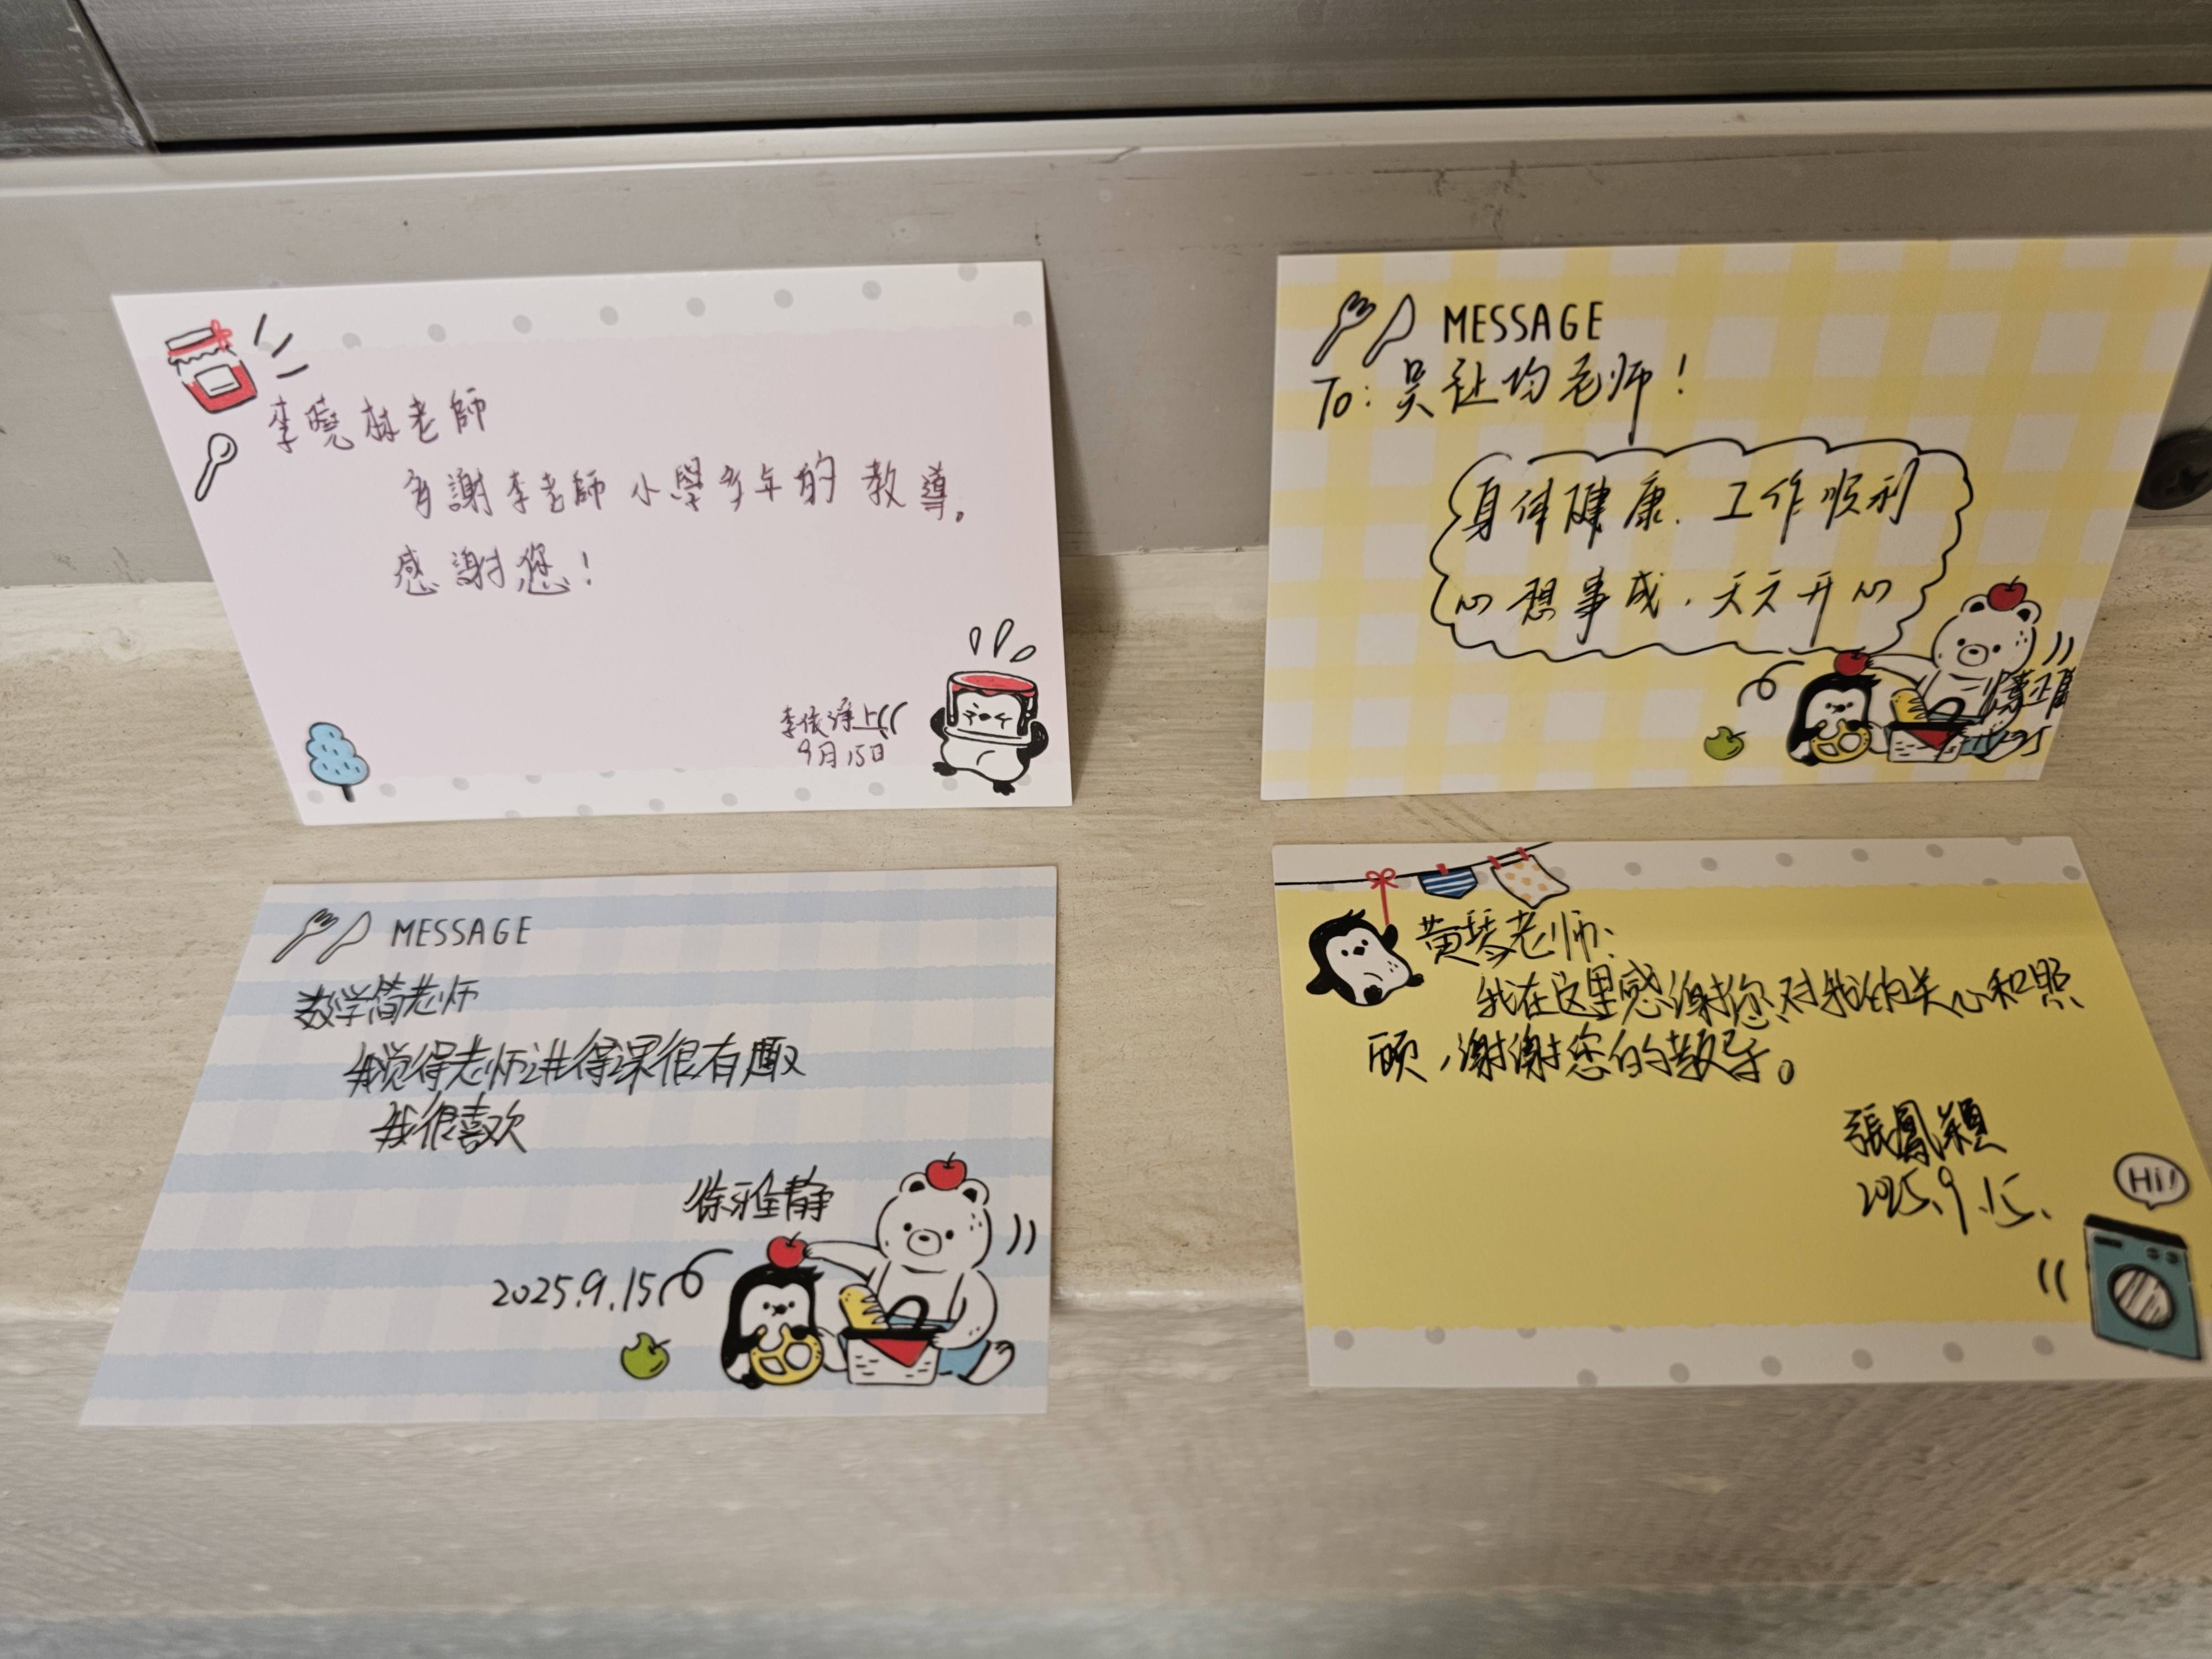 李曉林老師
多謝李老師小學多年的教導。
感謝您!
9月15日
MESSAGE
To: 吴让均老师!
身体健康、工作顺利
心想事成、天天开心
MESSAGE
数学简老师
我觉得老师讲得课很有趣
我很喜欢
徐雅静
2025.9.15
黄琴老师:
我在这里感谢您对我的关心和照
顾,谢谢您的教导。
張鳳穎
2025.9.15.
Hi!